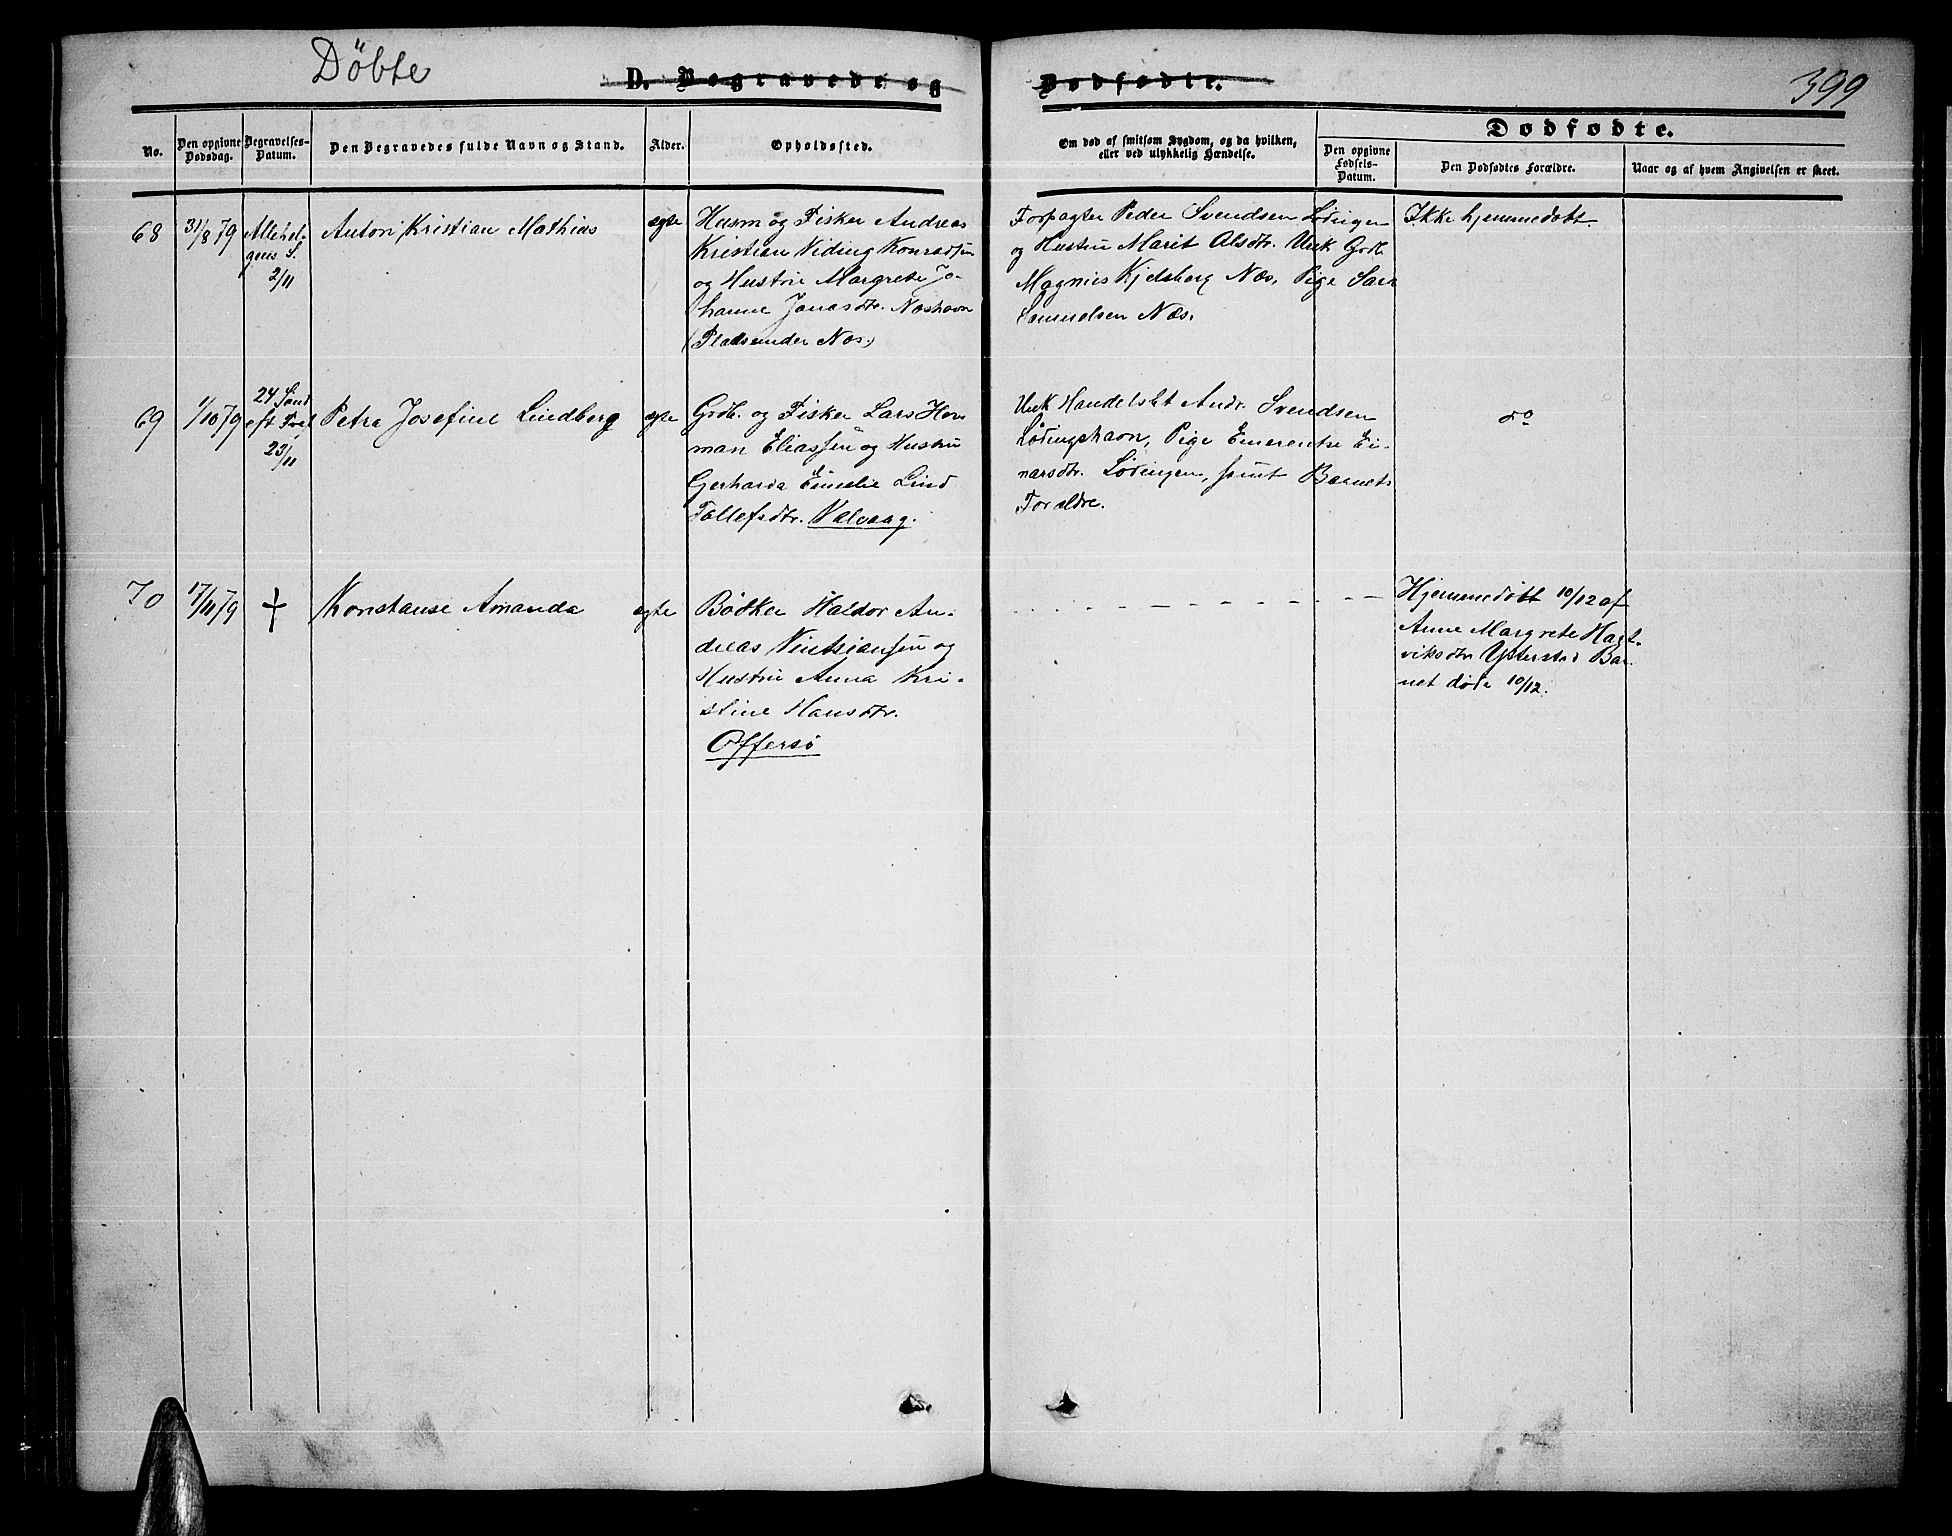 Döbte
D. Begravede og
Dødfødte.
399
No.
Den opgivne Dødsdag.
Begravelses-Datum.
Den Begravedes fulde Navn og Stand.
Alder.
Opholdssted.
Om død af smitsom Sygdom, og da hvilken,
eller ved ulykkelig Hændelse.
Dødfødte.
Den opgivne Fødsels-Datum.
Den Dødfødtes Forældre.
Naar og af hvem Angivelsen er skeet.
68
31/8 79
Allehel-
gens S.
2/11
Anton Kristian Mathias
egte
Husm og Fisker Andreas
Kristian Viding Konradsen
og Hustru Margrete Jo-
hanne Jonasdtr. Næshavn
(Plads under Næs.)
Forpagter Peder Svendsen Lødingen
og Hustru Marit Olsdtr. Unk Grdb.
Magnus Kjelsberg Næs, Pige Sara
Samuelsen Næs.
Ikke hjemmedøbt.
69
1/10 79
24 Sønd
eft Tref
23/11
Petra Josefine Lindberg
egte
Grdb. og Fisker Lars Her-
man Eliassen og Hustru
Gerharda Emelie Lind
Tollefsdtr. Valvaag.
Unk Handelsbt Andr. Svendsen
Lødingshavn, Pige Emerentse Ei-
narsdtr. Lødingen, samt Barnets
Forældre.
do
70
17/11 79
†
Konstanse Amanda
egte
Bødker Haldor An-
dreas Vintsiansen og
Hustru Anna Kri-
stine Hansdtr.
Offersø
Hjemmedøbt 10/12 af
Anne Margrete Hagt-
viksdtr Ytterstad Bar-
net døde 10/12.